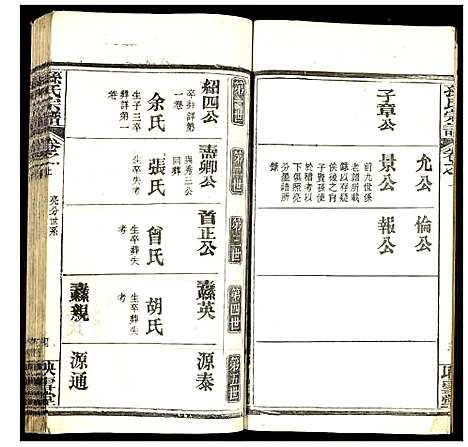 子章公
允公
倫公
景公
報公
前九世係
老譜所載
錄以存疑
俟後之賢
子賢孫便
於稽考以
下俱照亮
分墨譜所
錄
第一世
第二世
第三世
第四世
第五世
紹四公
卒葬詳第
一卷
余氏
生子三卒
葬詳第一
卷
壽卿公
與秀三公
同葬
張氏
生卒葬失
考
首正公
曾氏
生卒葬失
考
蠢英
胡氏
生卒葬失
考
源泰
蠢親
源通
孫氏宗譜
卷之一
亮分世系
映雪堂